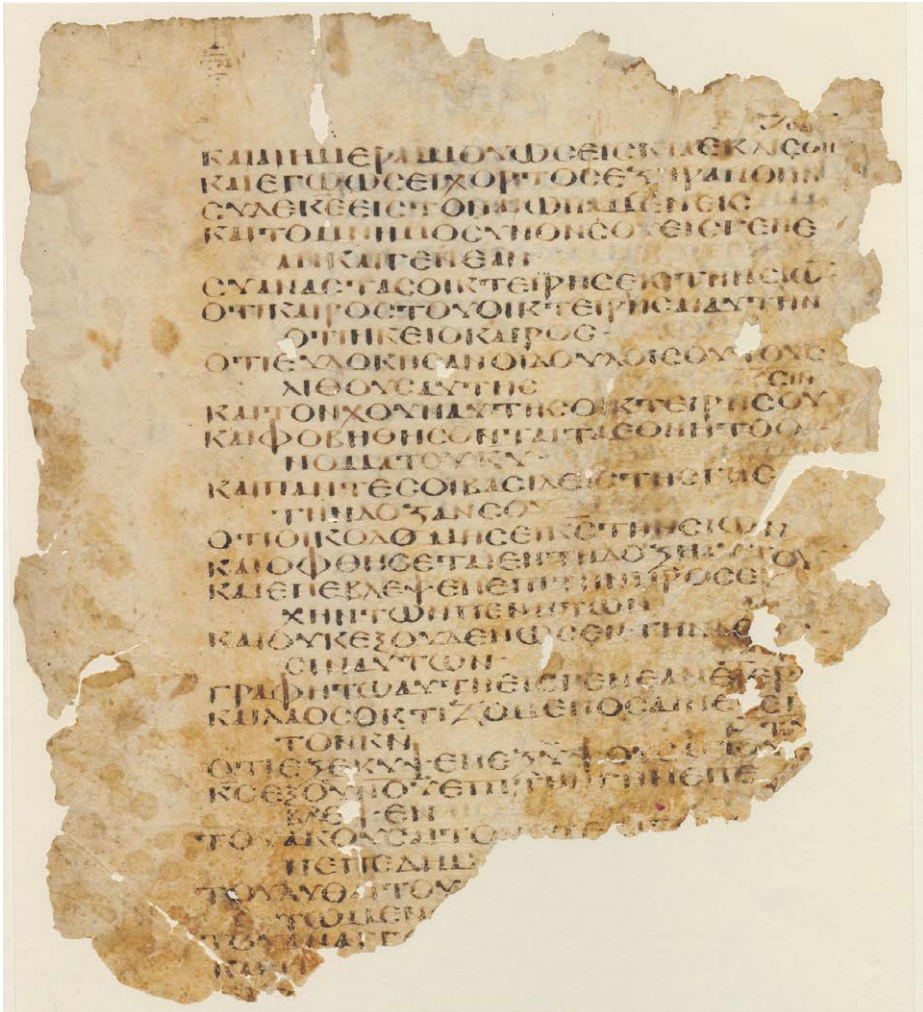 ΚΑΙΑΙΗΜΕΡΑΙΜΟΥΩϹΕΙϹΚΙΑΕΚΛΙϹ
ΚΑΙΕΓΩΩϹΕΙΧΟΡΤΟϹΕΞΗΡΑΝΘΗΝ
ϹΥΔΕΚΕΕΙϹΤΟΝΑΙΩΝΑΜΕΝΕΙϹ
ΚΑΙΤΟΜΝΗΜΟϹΥΝΟΝϹΟΥΕΙϹΓΕΝΕ
ΑΝΚΑΙΓΕΝΕΑΝ
ϹΥΑΝΑϹΤΑϹΟΙΚΤΕΙΡΗϹΕΙϹΤΗΝϹΙΩ
ΟΤΙΚΑΙΡΟϹΤΟΥΟΙΚΤΕΙΡΗϹΑΙΑΥΤΗΝ
ΟΤΙΗΚΕΙΟΚΑΙΡΟϹ·
ΟΤΙΕΥΔΟΚΗϹΑΝΟΙΔΟΥΛΟΙϹΟΥΤΟΥϹ
ΛΙΘΟΥϹΑΥΤΗϹ
ϹΙΝ
ΚΑΙΤΟΝΧΟΥΝΑΥΤΗϹΟΙΚΤΕΙΡΗϹΟΥ
ΚΑΙΦΟΒΗΘΗϹΟΝΤΑΙΤΑΕΘΝΗΤΟΟ
ΝΟΜΑΤΟΥΚΥ·
ΚΑΙΠΑΝΤΕϹΟΙΒΑϹΙΛΕΙϹΤΗϹΓΗϹ
ΤΗΝΔΟΞΑΝϹΟΥ
ΟΤΙΟΙΚΟΔΟΜΗϹΕΙΚϹΤΗΝϹΙΩΝ
ΚΑΙΟΦΘΗϹΕΤΑΙΕΝΤΗΔΟΞΗΑΥΤΟΥ
ΚΑΙΕΠΕΒΛΕΨΕΝΕΠΙΤΗΝΠΡΟϹΕΥ
ΧΗΝΤΩΝΠΕΝΗΤΩΝ
ΚΑΙΟΥΚΕΞΟΥΔΕΝΩϹΕΝΤΗΝΔΕ
ϹΙΝΑΥΤΩΝ·
ΓΡΑΦΗΤΩΑΥΤΗΕΙϹΓΕΝΕΑΝΕΤΕΡ
ΚΑΙΛΑΟϹΟΚΤΙΖΟΜΕΝΟϹΑΙΝΕϹΕΙ
ΤΟΝΚΝ
ΟΤΙΕΞΕΚΥΨΕΝΕΞΥΨΟΥϹ
ΚϹΕΞΟΥΝΟΥΕΠΙΤΗΝΓΗΝΕΠΕ
ΒΛΕΨΕΝ
ΤΟΥΑΚΟΥϹΑΙΤΟΥ
ΠΕΠΕΔΗΜ
ΤΟΥΛΥϹΑΙΤΟΥ
ΤΩΜΕΝ
ΤΟΥΑΝΑΓΓ
ΚΑΙ